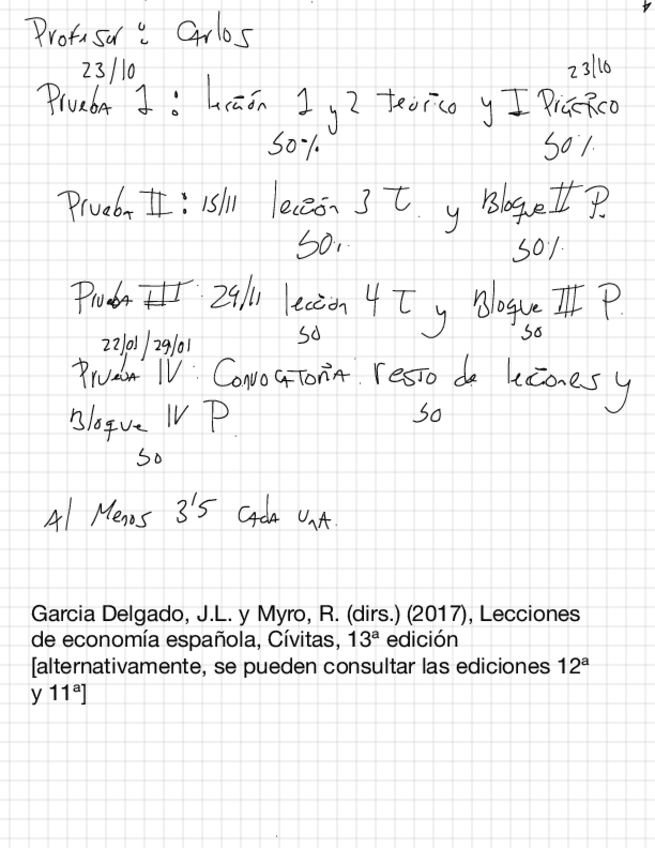 Profesor : Carlos
23/10 23/10
Prueba 1 : lección 1 y 2 teórico y I Práctico
50% 50%
Prueba II : 15/11 lección 3 T. y Bloque II P.
50% 50%
Prueba III : 29/11 lección 4 T y Bloque III P.
50 50
22/01 / 29/01
Prueba IV : Convocatoria : resto de lecciones y
50
Bloque IV P.
50
Al Menos 3'5 cada una.
Garcia Delgado, J.L. y Myro, R. (dirs.) (2017), Lecciones
de economía española, Cívitas, 13ª edición
[alternativamente, se pueden consultar las ediciones 12ª
y 11ª]